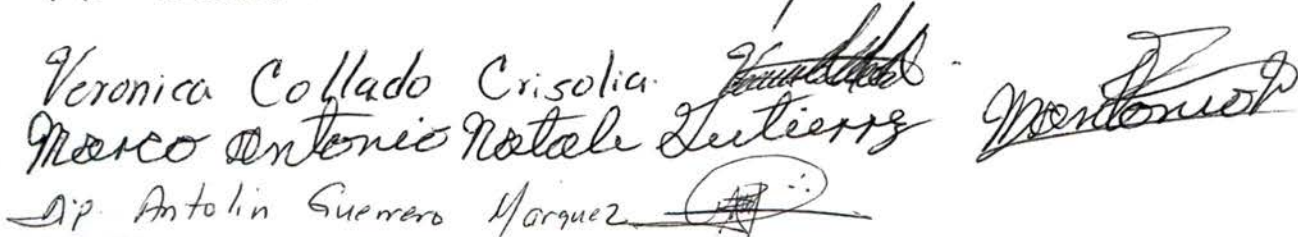 Veronica Collado Crisolia.
Marco Antonio Natale Gutierrez
Dip. Antolin Guerrero Marquez